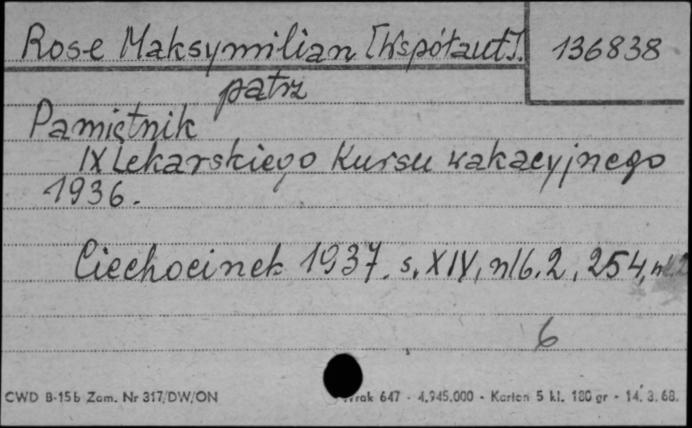 Rose Maksymilian [Współaut]. 136838
patrz
Pamiętnik
IX Lekarskiego Kursu wakacyjnego
1936.
Ciechocinek 1937. s. XIV, nlb. 2, 254,
6
CWD B-15b Zam. Nr 317/DW/ON 647 - 4.945.000 - Karton 5 kl. 180 gr - 14. 3. 68.